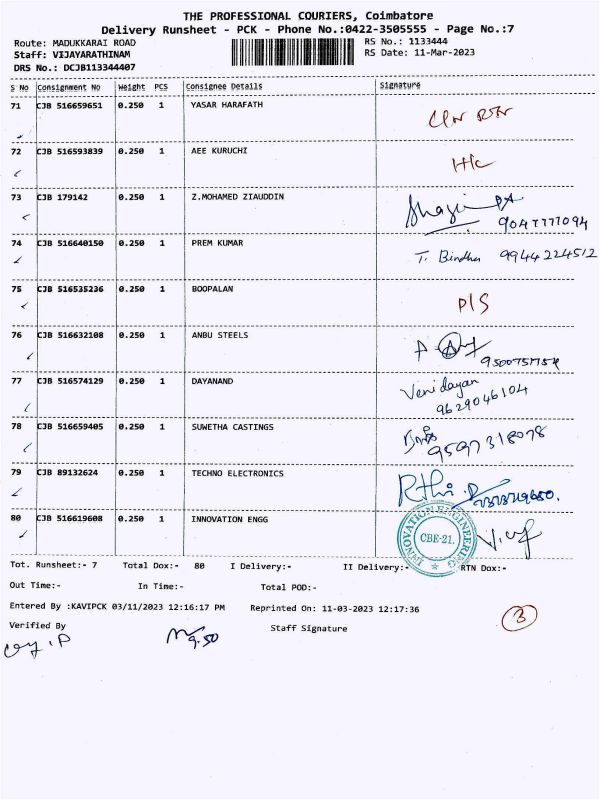 THE PROFESSIONAL COURIERS, Coimbatore
Delivery Runsheet - PCK - Phone No.:0422-3505555 - Page No.:7
Route: MADUKKARAI ROAD RS No.: 1133444
Staff: VIJAYARATHINAM RS Date: 11-Mar-2023
DRS No.: DCJB113344407
S No Consignment No Weight PCS Consignee Details Signature
71 CJB 516659651 0.250 1 YASAR HARAFATH
72 CJB 516593839 0.250 1 AEE KURUCHI
73 CJB 179142 0.250 1 Z.MOHAMED ZIAUDDIN
9047777094
74 CJB 516640150 0.250 1 PREM KUMAR
T. Bindhu 9944224512
75 CJB 516535236 0.250 1 BOOPALAN
P/S
76 CJB 516632108 0.250 1 ANBU STEELS
77 CJB 516574129 0.250 1 DAYANAND
Venidayan
9629046104
78 CJB 516659405 0.250 1 SUWETHA CASTINGS
9597318078
79 CJB 89132624 0.250 1 TECHNO ELECTRONICS
80 CJB 516619608 0.250 1 INNOVATION ENGG
INNOVATION ENGINEERING
CBE-21.
Tot. Runsheet:- 7 Total Dox:- 80 I Delivery:- II Delivery:- RTN Dox:-
Out Time:- In Time:- Total POD:-
Entered By :KAVIPCK 03/11/2023 12:16:17 PM Reprinted On: 11-03-2023 12:17:36
3
Verified By Staff Signature
9.50